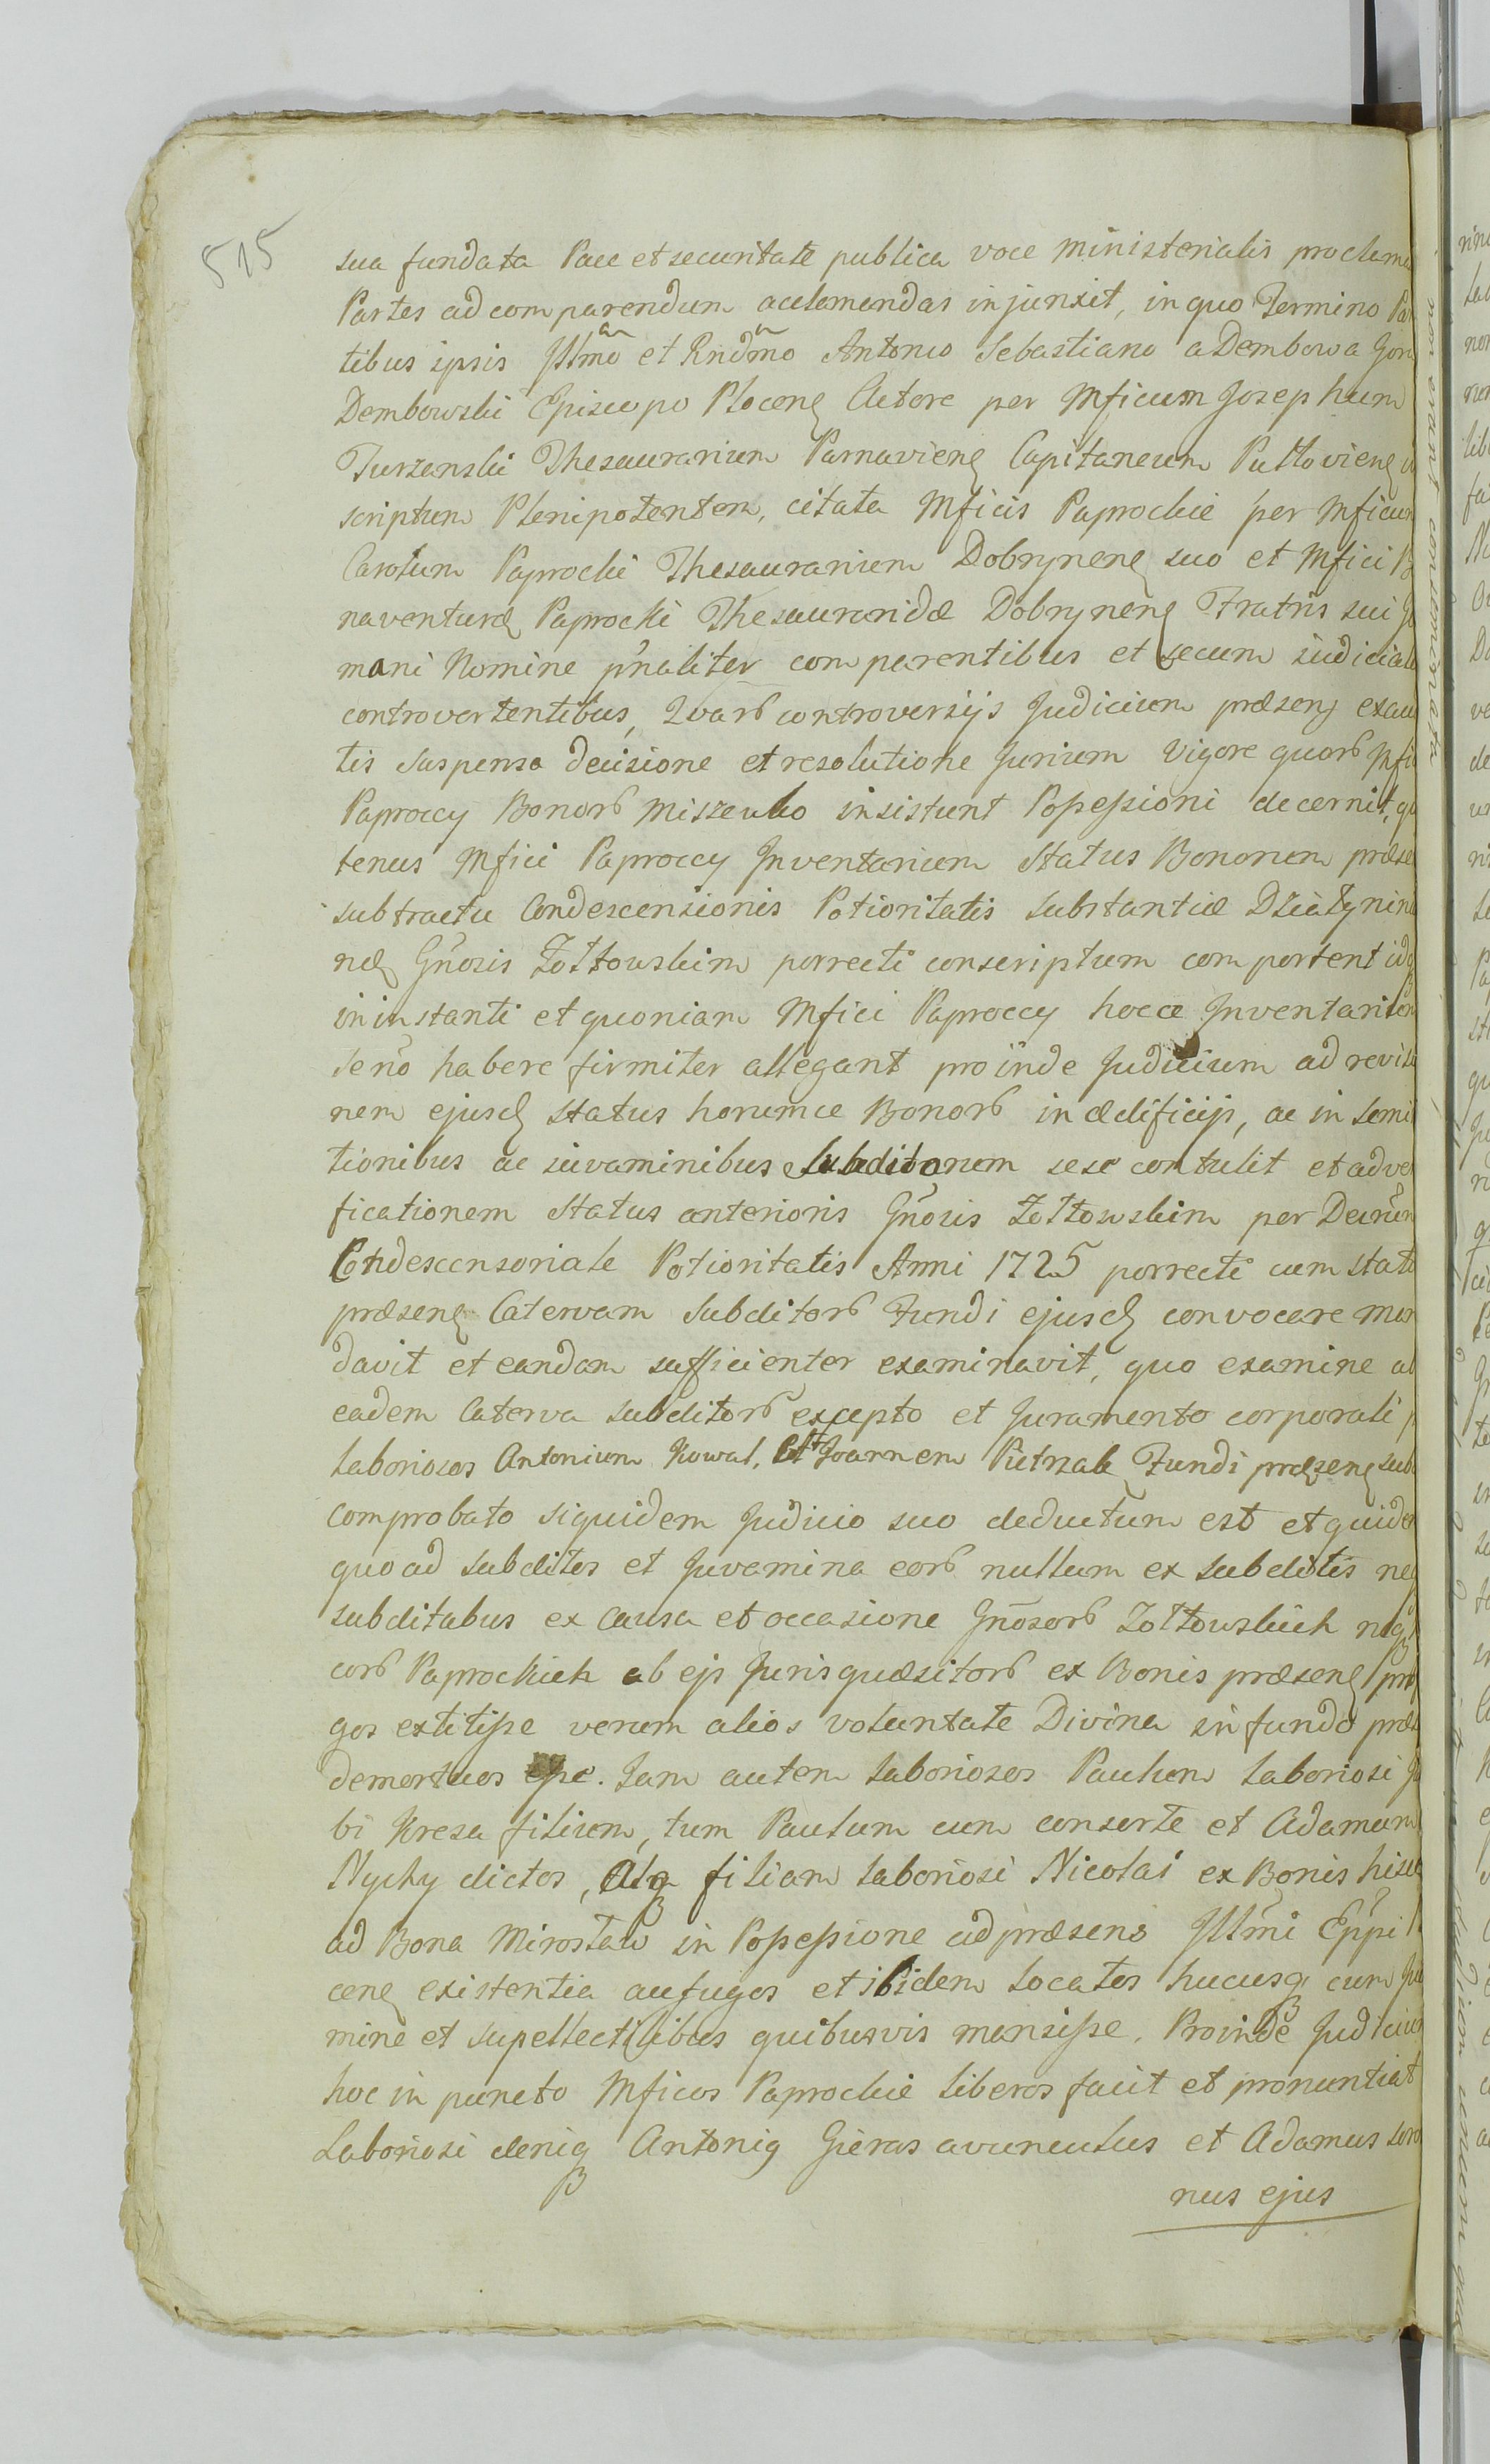 515
sua fundata Pace et securitate publica voce ministerialis proclama
Partes ad comparendum acclamandas injunxit, in quo Termino Par
tibus ipsis Illmo et Rndmo Antonio Sebastiano a Dembowa Gora
Dembowski Episcopo Plocenę Actore per Mficum Josephum
Turzenski Thesaurarium Parnavienę Capitaneum Pultovienę
scriptum Plenipotentem, citata Mficis Paprockie per Mficum
Carolum Paprocki Thesaurarium Dobrynenę suo et Mfici Bo
naventuræ Paprocki Thesauraridæ Dobrynenę Fratris sui Ger
mani Nomine pñaliter comparentibus et secum iudicial
controvertentibus, Quarb controversijs Judicium præsens exau
tis suspensa decisione et resolutione Jurium Vigore quorb Mfici
Paproccy Bonorb Miszewko insistunt Possessioni decernit, qua
tenus Mfici Paproccy Inventarium Status Bonorum præse
sub tractu Condescensionis Potioritatis substantiæ Działynin
næ Gñosis Zołtowskim porrecti conscriptum comportent idq
in instanti et quoniam Mfici Paproccy hocce Inventarium
se nō habere firmiter allegant proinde Judicium ad revisi
nem ejusd status horumce Bonorb in ædificijs, ac in semi
tionibus ac iuvaminibus Subditorum sese contulit et ad ve
ficationem Status anterioris Gñosis Zołtowskim per Decrūm
Condescensoriale Potioritatis Anni 1725 porrecti cum statu
præsenę Catervam Subditorb Fundi ejusd convocare man
davit et eandam sufficienter examinavit, quo examine ab
eadem Caterva subditorb excepto et Juramento corporali
laboriosos Antonium Kowal, et Joannem Pietrzak Fundi præsenę sub
comprobato siquidem Judicio suo deductum est et quidem
quo ad subditos et Juvamina eorb nullum ex subditis neq
subditabus ex causa et occasione Gñosorb Zołtowskich neq
corb Paprockich ab ejs Jurisquæsitorb ex Bonis præsenę prof
gos extitisse verum alios voluntate Divina in fundo præs
demortuos esse. Jam autem laboriosos Paulum laboriosi Ja
bi Kreza filium, tum Paulum cum consorte et Adamum
Nychy dictos, Atq filiam laboriosi Nicolai ex Bonis hisce
ad Bona Mirosław in Possessione ad præsens Illmi Eppi
cenę existentia aufugos et ibidem locatos hucusq cum Ju
mine et supellectilibus quibusvis mansisse. Proinde Judicium
hoc in puncto Mficos Paprockie liberos facit et pronuntiat
Laboriosi deniq Antonig Gieras avunculus et Adamus soro
nus ejus